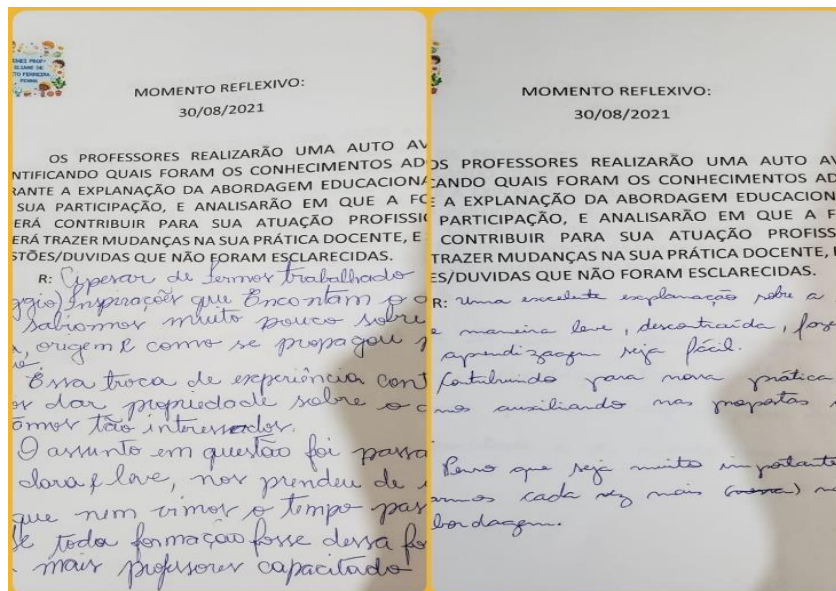 MOMENTO REFLEXIVO:
30/08/2021
OS PROFESSORES REALIZARÃO UMA AUTO AV
NTIFICANDO QUAIS FORAM OS CONHECIMENTOS AD
RANTE A EXPLANAÇÃO DA ABORDAGEM EDUCACIONA
SUA PARTICIPAÇÃO, E ANALISARÃO EM QUE A FO
ERÁ CONTRIBUIR PARA SUA ATUAÇÃO PROFISSI
ERÁ TRAZER MUDANÇAS NA SUA PRÁTICA DOCENTE, E
STÕES/DUVIDAS QUE NÃO FORAM ESCLARECIDAS.
R: Apesar de termos trabalhado
ggio) Inspirações que Encantam o
sabiamos muito pouco sobre
, origem e como se propagou
Essa troca de experiência cont
dar propriedade sobre o
tão interessados.
O assunto em questão foi passa
clara e leve, nos prendeu de
que nem vimos o tempo pas
toda formação fosse dessa fo
mais professores capacitado
MOMENTO REFLEXIVO:
30/08/2021
OS PROFESSORES REALIZARÃO UMA AUTO AV
CANDO QUAIS FORAM OS CONHECIMENTOS AD
E A EXPLANAÇÃO DA ABORDAGEM EDUCACION
PARTICIPAÇÃO, E ANALISARÃO EM QUE A F
CONTRIBUIR PARA SUA ATUAÇÃO PROFISS
TRAZER MUDANÇAS NA SUA PRÁTICA DOCENTE,
ES/DUVIDAS QUE NÃO FORAM ESCLARECIDAS.
R: Uma excelente explanação sobre a
maneira leve, descontraída, faze
aprendizagem seja fácil.
Contribuindo para nossa prática
nos auxiliando nas propostas
Penso que seja muito importante
cada vez mais
bordagem.